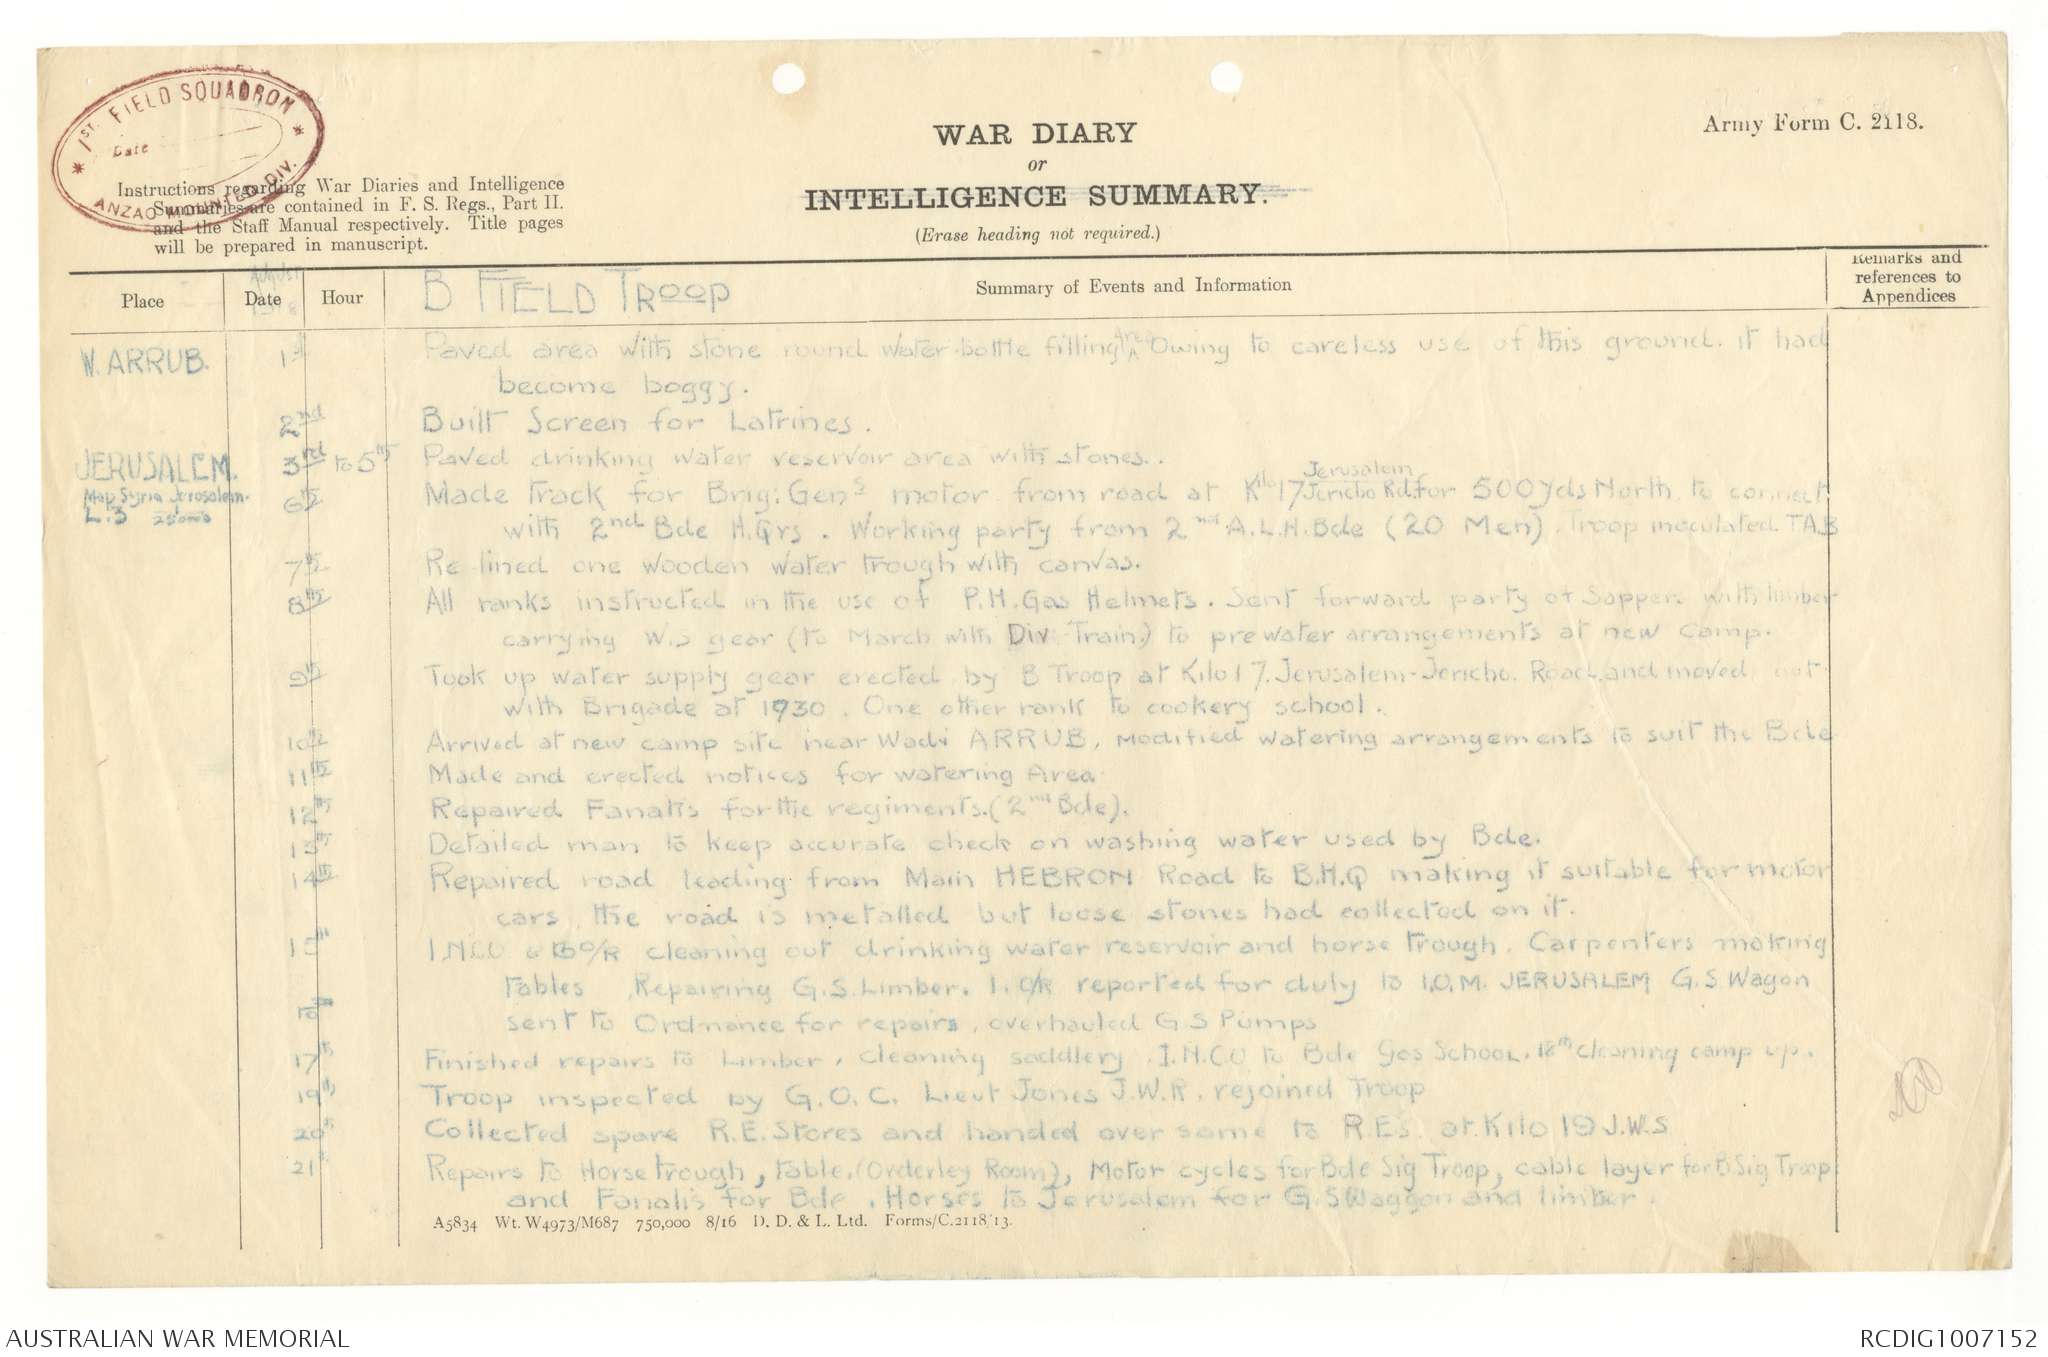 1ST. FIELD SQUADRON
Date
ANZAC MOUNTED DIV.
Army Form C. 2118.
WAR DIARY
or
INTELLIGENCE SUMMARY.
(Erase heading not required.)
Instructions regarding War Diaries and Intelligence
Summaries are contained in F. S. Regs., Part II.
and the Staff Manual respectively. Title pages
will be prepared in manuscript.
Place
August
Date
1918
Hour
B FIELD TROOP
Summary of Events and Information
Remarks and
references to
Appendices
W. ARRUB. 1st Paved area with stone round water bottle filling Owing to careless use of this ground. it had
become boggy.
2nd Built Screen for Latrines.
JERUSALEM. 3rd to 5th Paved drinking water reservoir area with stones..
Map Syria Jerusalem.
L.3
6th Made track for Brig: Gens motor from road at Kilo 17 Jerusalem Jericho Rd. for 500 yds North to connect
with 2nd Bde H.Qrs. Working party from 2nd A.L.H.Bde (20 Men). Troop inoculated TAB
7th Re lined one wooden water trough with canvas.
8th All ranks instructed in the use of P.H. Gas Helmets. Sent forward party of Sappers with limber
carrying W.S gear (to March with Div Train.) to pre water arrangements at new camp.
9th Took up water supply gear erected by B Troop at Kilo 17. Jerusalem-Jericho. Road. and moved out
with Brigade at 1930. One other rank to cookery school.
10th Arrived at new camp site near Wadi ARRUB, Modified watering arrangements to suit the Bde
11th Made and erected notices for watering Area.
12th Repaired Fanatis for the regiments. (2nd Bde).
13th Detailed man to keep accurate check on washing water used by Bde.
14th Repaired road leading from Main HEBRON Road to B.H.Q making it suitable for motor
cars, the road is metalled but loose stones had collected on it.
15th 1.NCO & 6 O/R cleaning out drinking water reservoir and horse trough. Carpenters making
tables, Repairing G.S. Limber. 1. O/R reported for duty to I.O.M. JERUSALEM G.S Wagon
16th sent to Ordnance for repairs, overhauled G S Pumps
17th Finished repairs to Limber, cleaning saddlery. 1.NCO to Bde Gas School. 18th cleaning camp up.
19th Troop inspected by G.O.C. Lieut Jones J.W.R. rejoined Troop
20th Collected spare R.E. Stores and handed over same to R.Es. at Kilo 19 J.W.S
21st Repairs to Horse trough, table, (Orderley Room), Motor cycles for Bde Sig Troop, cable layer for B Sig Troop
and Fanatis for Bde. Horses to Jerusalem for G.S Waggon and limber.
A5834 Wt. W4973/M687 750,000 8/16 D. D. & L. Ltd. Forms/C.2118/13.
AUSTRALIAN WAR MEMORIAL
RCDIG1007152